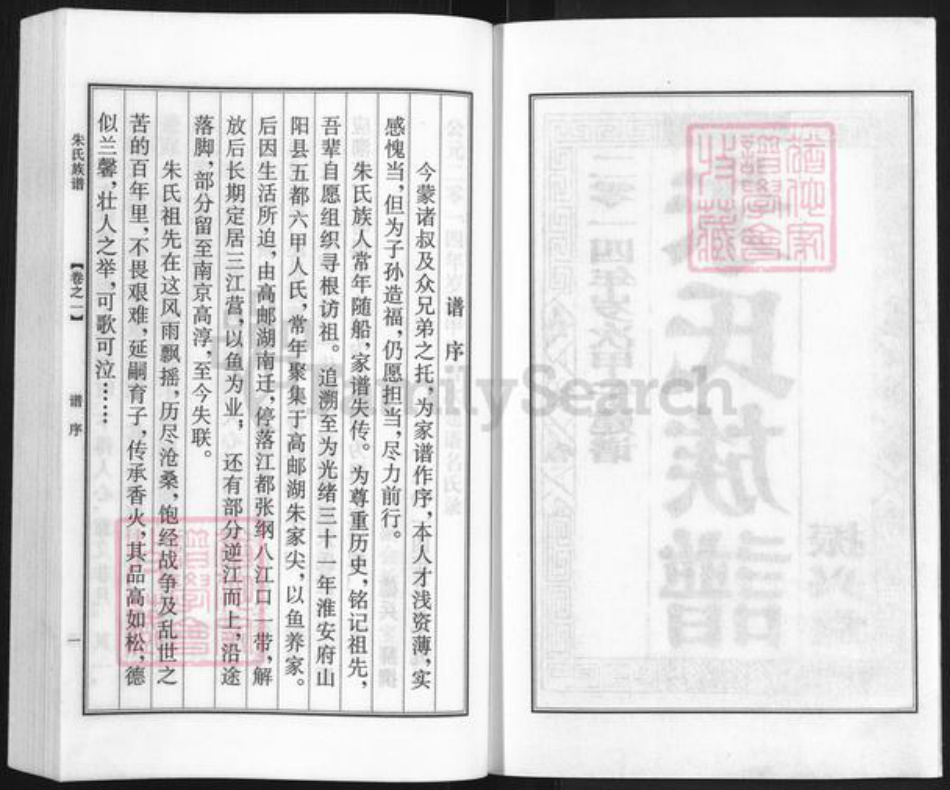 谱序
今蒙诸叔及众兄弟之托，为家谱作序，本人才浅资薄，实
感愧当，但为子孙造福，仍愿担当，尽力前行。
朱氏族人常年随船，家谱失传。为尊重历史，铭记祖先，
吾辈自愿组织寻根访祖。追溯至为光绪三十一年淮安府山
阳县五都六甲人氏，常年聚集于高邮湖朱家尖，以鱼养家。
后因生活所迫，由高邮湖南迁，停落江都张纲八江口一带，解
放后长期定居三江营，以鱼为业；还有部分逆江而上，沿途
落脚，部分留至南京高淳，至今失联。
朱氏祖先在这风雨飘摇，历尽沧桑，饱经战争及乱世之
苦的百年里，不畏艰难，延嗣育子，传承香火，其品高如松，德
似兰馨，壮人之举，可歌可泣……
朱氏族谱
【卷之一】
谱序
一
FamilySearch
氏族譜
二零一四年岁次甲午建谱